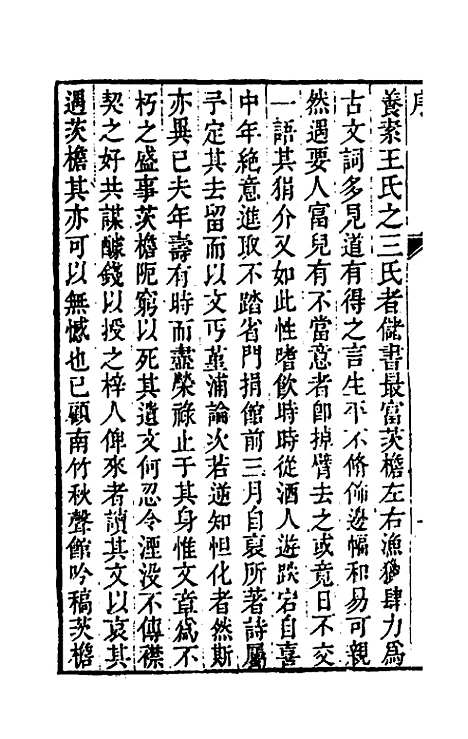 序
養素王氏之三氏者儲書最富茨檐左右漁獵肆力爲
古文詞多見道有得之言生平不脩飾邊幅和易可親
然遇要人富兒有不當意者卽掉臂去之或竟日不交
一語其狷介又如此性嗜飲時時從酒人遊跌宕自喜
中年絶意進取不踏省門捐館前三月自裒所著詩屬
予定其去留而以文丐堇浦論次若逆知怛化者然斯
亦異已夫年壽有時而盡榮祿止于其身惟文章爲不
朽之盛事茨檐阨窮以死其遺文何忍令湮没不傳襟
契之好共謀醵錢以授之梓人俾來者讀其文以哀其
遇茨檐其亦可以無憾也已顧南竹秋聲館吟稿茨檐